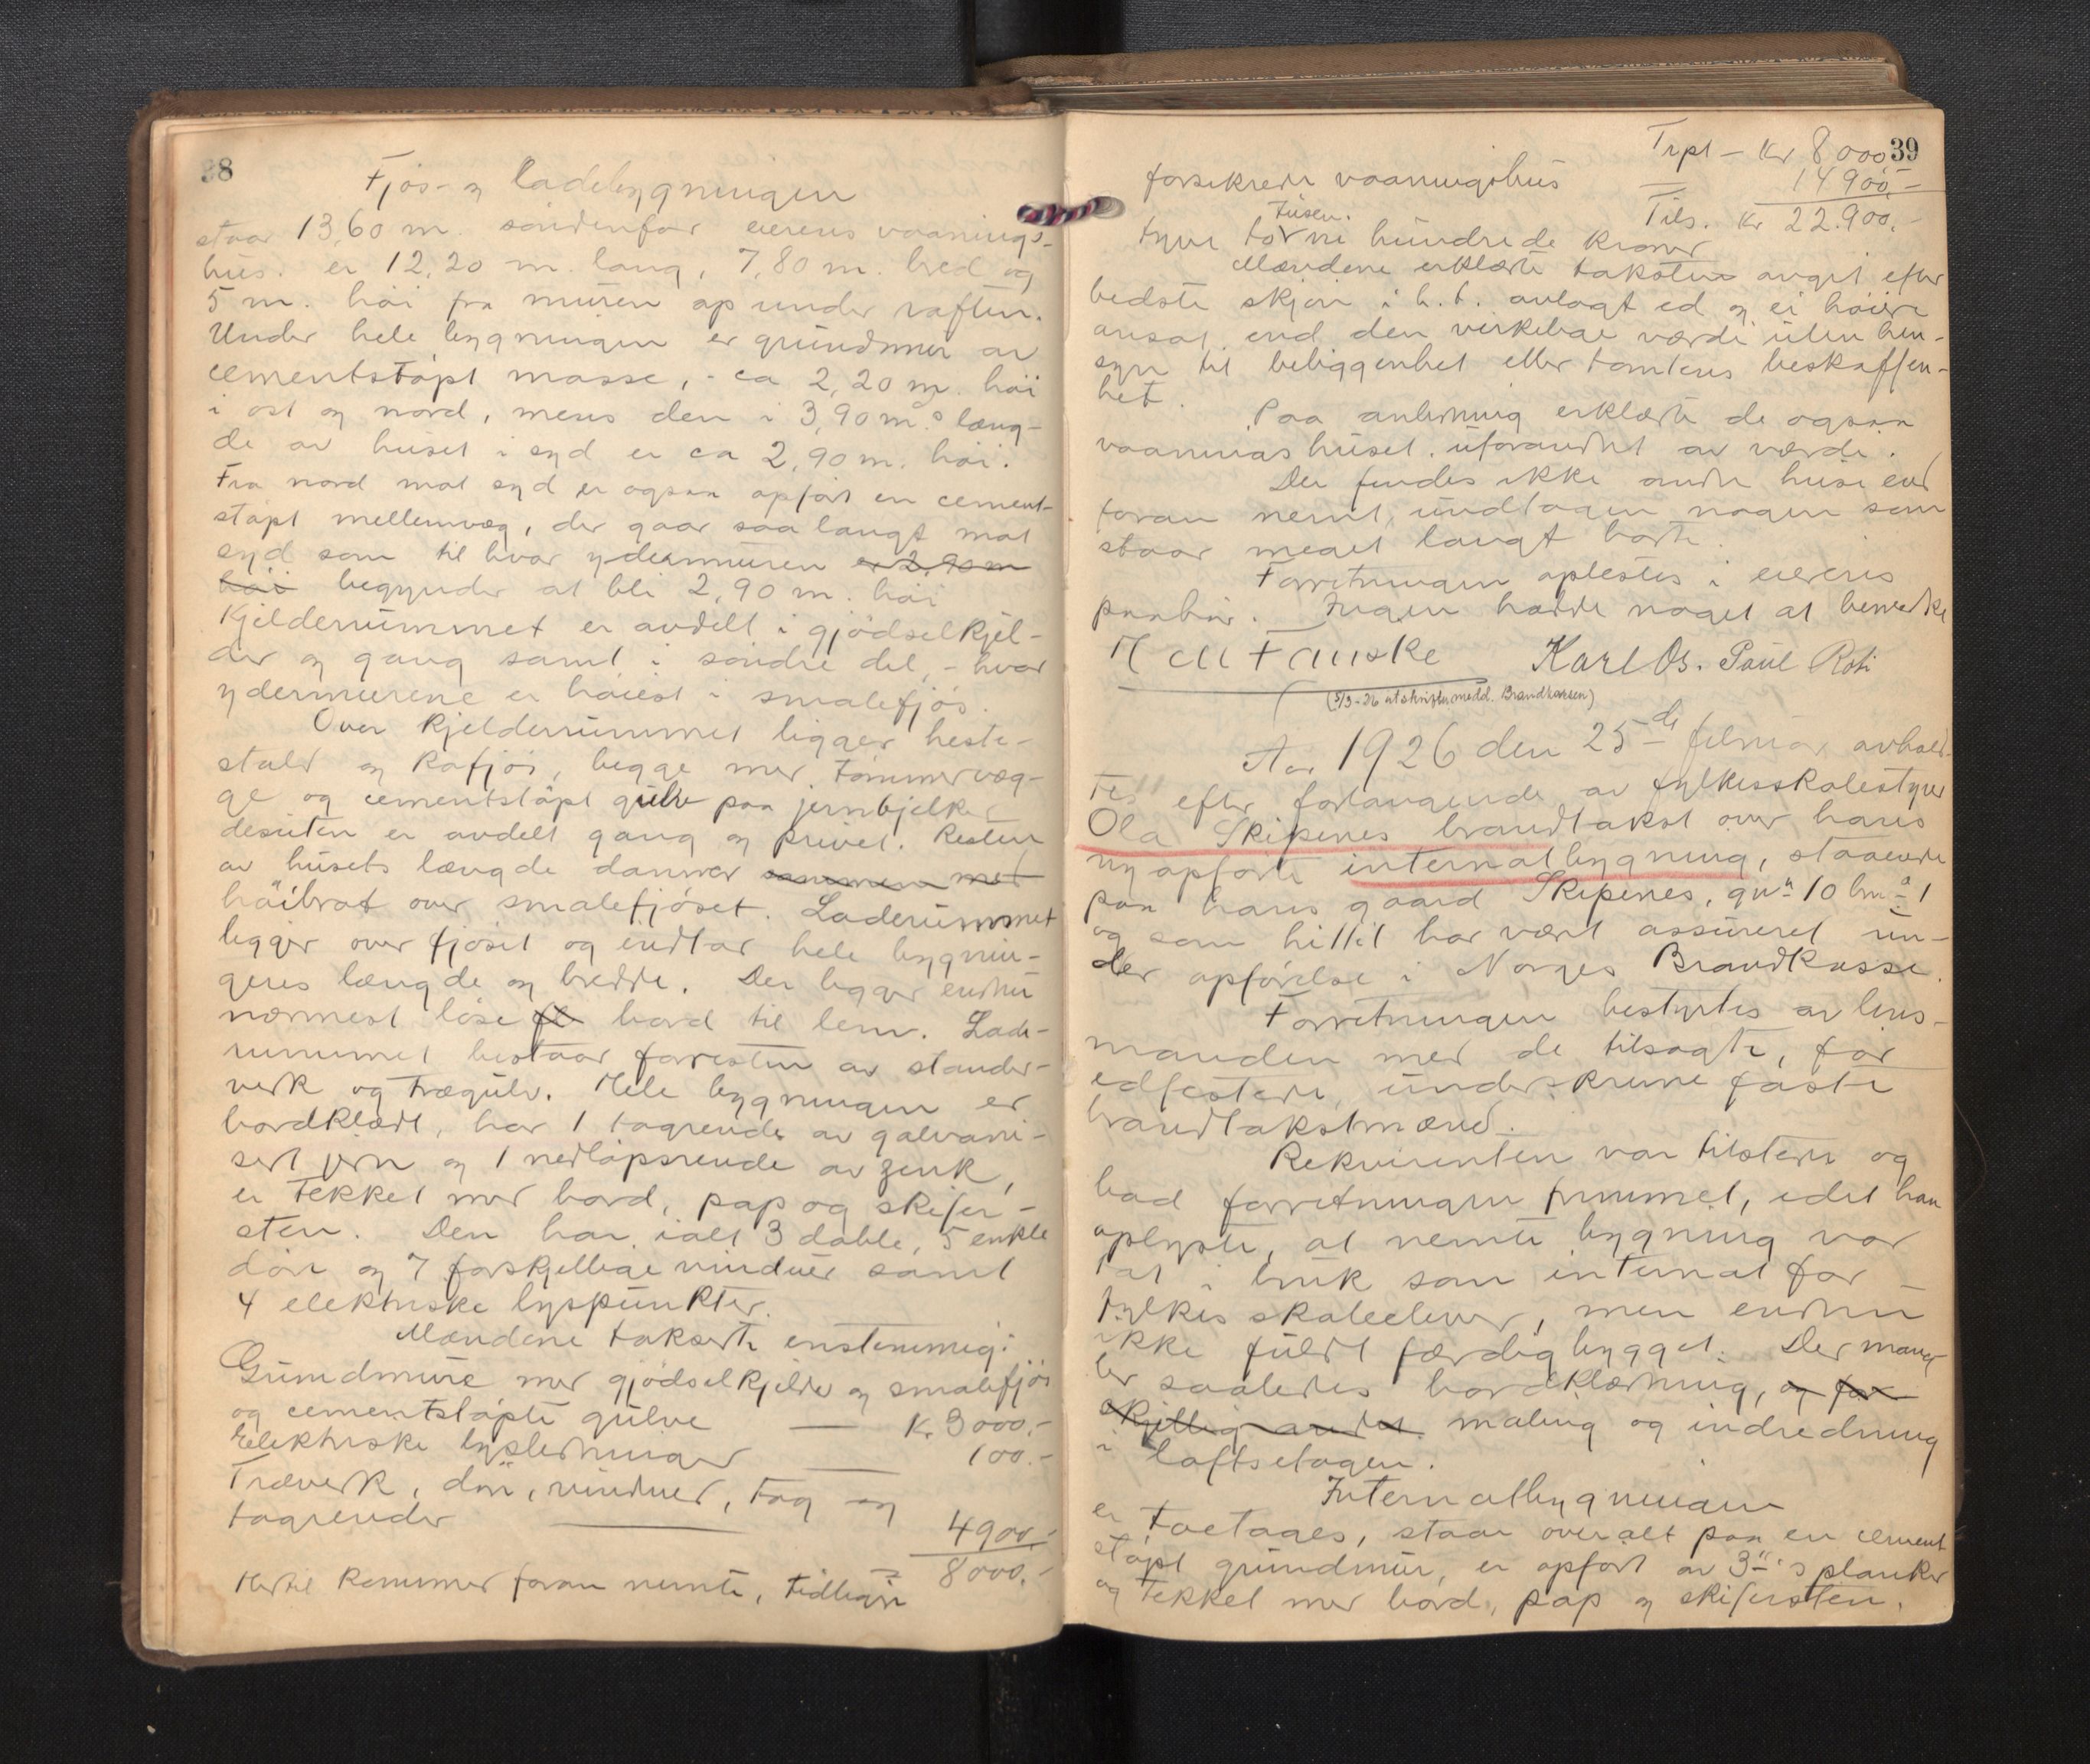 38
Fjøs- og ladebygningen
staar 13,60 m. søndenfor eierens vaanings-
hus. er 12,20 m. lang, 7,80 m. bred og
5 m. høi fra muren op under raften.
Under hele bygningen er grundmur av
cementstøpt masse, - ca 2,20 m. høi
i øst og nord, mens den i 3,90 m.s læng-
de av huset i syd er ca 2,90 m. høi.
Fra nord mot syd er ogsaa opført en cement-
støpt mellemvæg, der gaar saa langt mot
syd som til hvor ydermuren er 2,90 m
høi begynder at bli 2,90 m. høi
Kjelderrummet er avdelt i gjødselkjel-
der og gang samt i søndre del, - hvor
ydermurene er høiest i smalefjøs.
Over kjelderrummet ligger heste-
stald og kofjøs, begge med tømmervæg-
ge og cementstøpt gulv paa jernbjelker
desuten er avdelt gang og privet. Resten
av husets længde danner sammen med
høibrot over smalefjøset. Laderummet
ligger over fjøset og indtar hele bygnin-
gens længde og bredde. Der ligger endnu
nærmest løse bord til lem. Lade-
rummet bestaar forresten av stander-
verk og trægulv. Hele bygningen er
bordklædt, har 1 tagrende av galvani-
sert jern og 1 nedløpsrende av zink,
er tekket med bord, pap og skifer-
sten. Den har ialt 3 doble, 5 enkle
døre og 7 forskjellige vinduer samt
4 elektriske lyspunkter.
Mændene takserte enstemmig:
Grundmure med gjødselkjelder og smalefjøs
og cementstøpte gulve — Kr 3000.-
Elektriske lysledninger — 100.-
Træverk, døre, vinduer, tag og
tagrender — 4900.-
8000.-
Hertil kommer foran nemte, tidligere
39
Trpt - Kr 8000
forsikrede vaaningshus — 14900.-
Tils. Kr 22.900.-
tusen.
tyve to ni hundrede kroner
Mændene erklærte taksten avgit efter
bedste skjøn i h.t. avlagt ed og ei høiere
ansat end den virkelige værdi uten hen-
syn til beliggenhet eller tomtens beskaffen-
het.
Paa anledning erklærte de ogsaa
vaaningshuset uforandret av værdi.
Der findes ikke andre huse end
foran nemt, undtagen nogen som
staar meget langt borte.
Forretningen oplestes i eierens
paahør. Ingen hadde noget at bemerke
Fauske Karl Os. Paul Roti
(5/3-26 utskrift medd. Brandkassen)
Aar 1926 den 25de februar avhold-
tes efter forlangende av fylkesskolestyrer
Ola Skipenes brandtakst over hans
nyopførte internatbygning, staaende
paa hans gaard Skipenes, gnr 10 bnr 1
og som hittil har vært assureret un-
der opførelse i Norges Brandkasse.
Forretningen bestyrtes av lens-
manden med de tilsagte, før
edfestede, underskrevne faste
brandtakstmænd.
Rekvirenten var tilstede og
bad forretningen fremmet, idet han
oplyste, at nemte bygning var
tat i bruk som internat for
fylkesskoleelever, men endnu
ikke fuldt færdigbygget. Der mang-
ler saaledes bordklædning, og for-
skjellig andet maling og indredning
i loftsetagen.
Internatbygningen
er toetages, staar overalt paa en cement
støpt grundmur, er opført av 3"s planker
og tekket med bord, pap og skifersten.